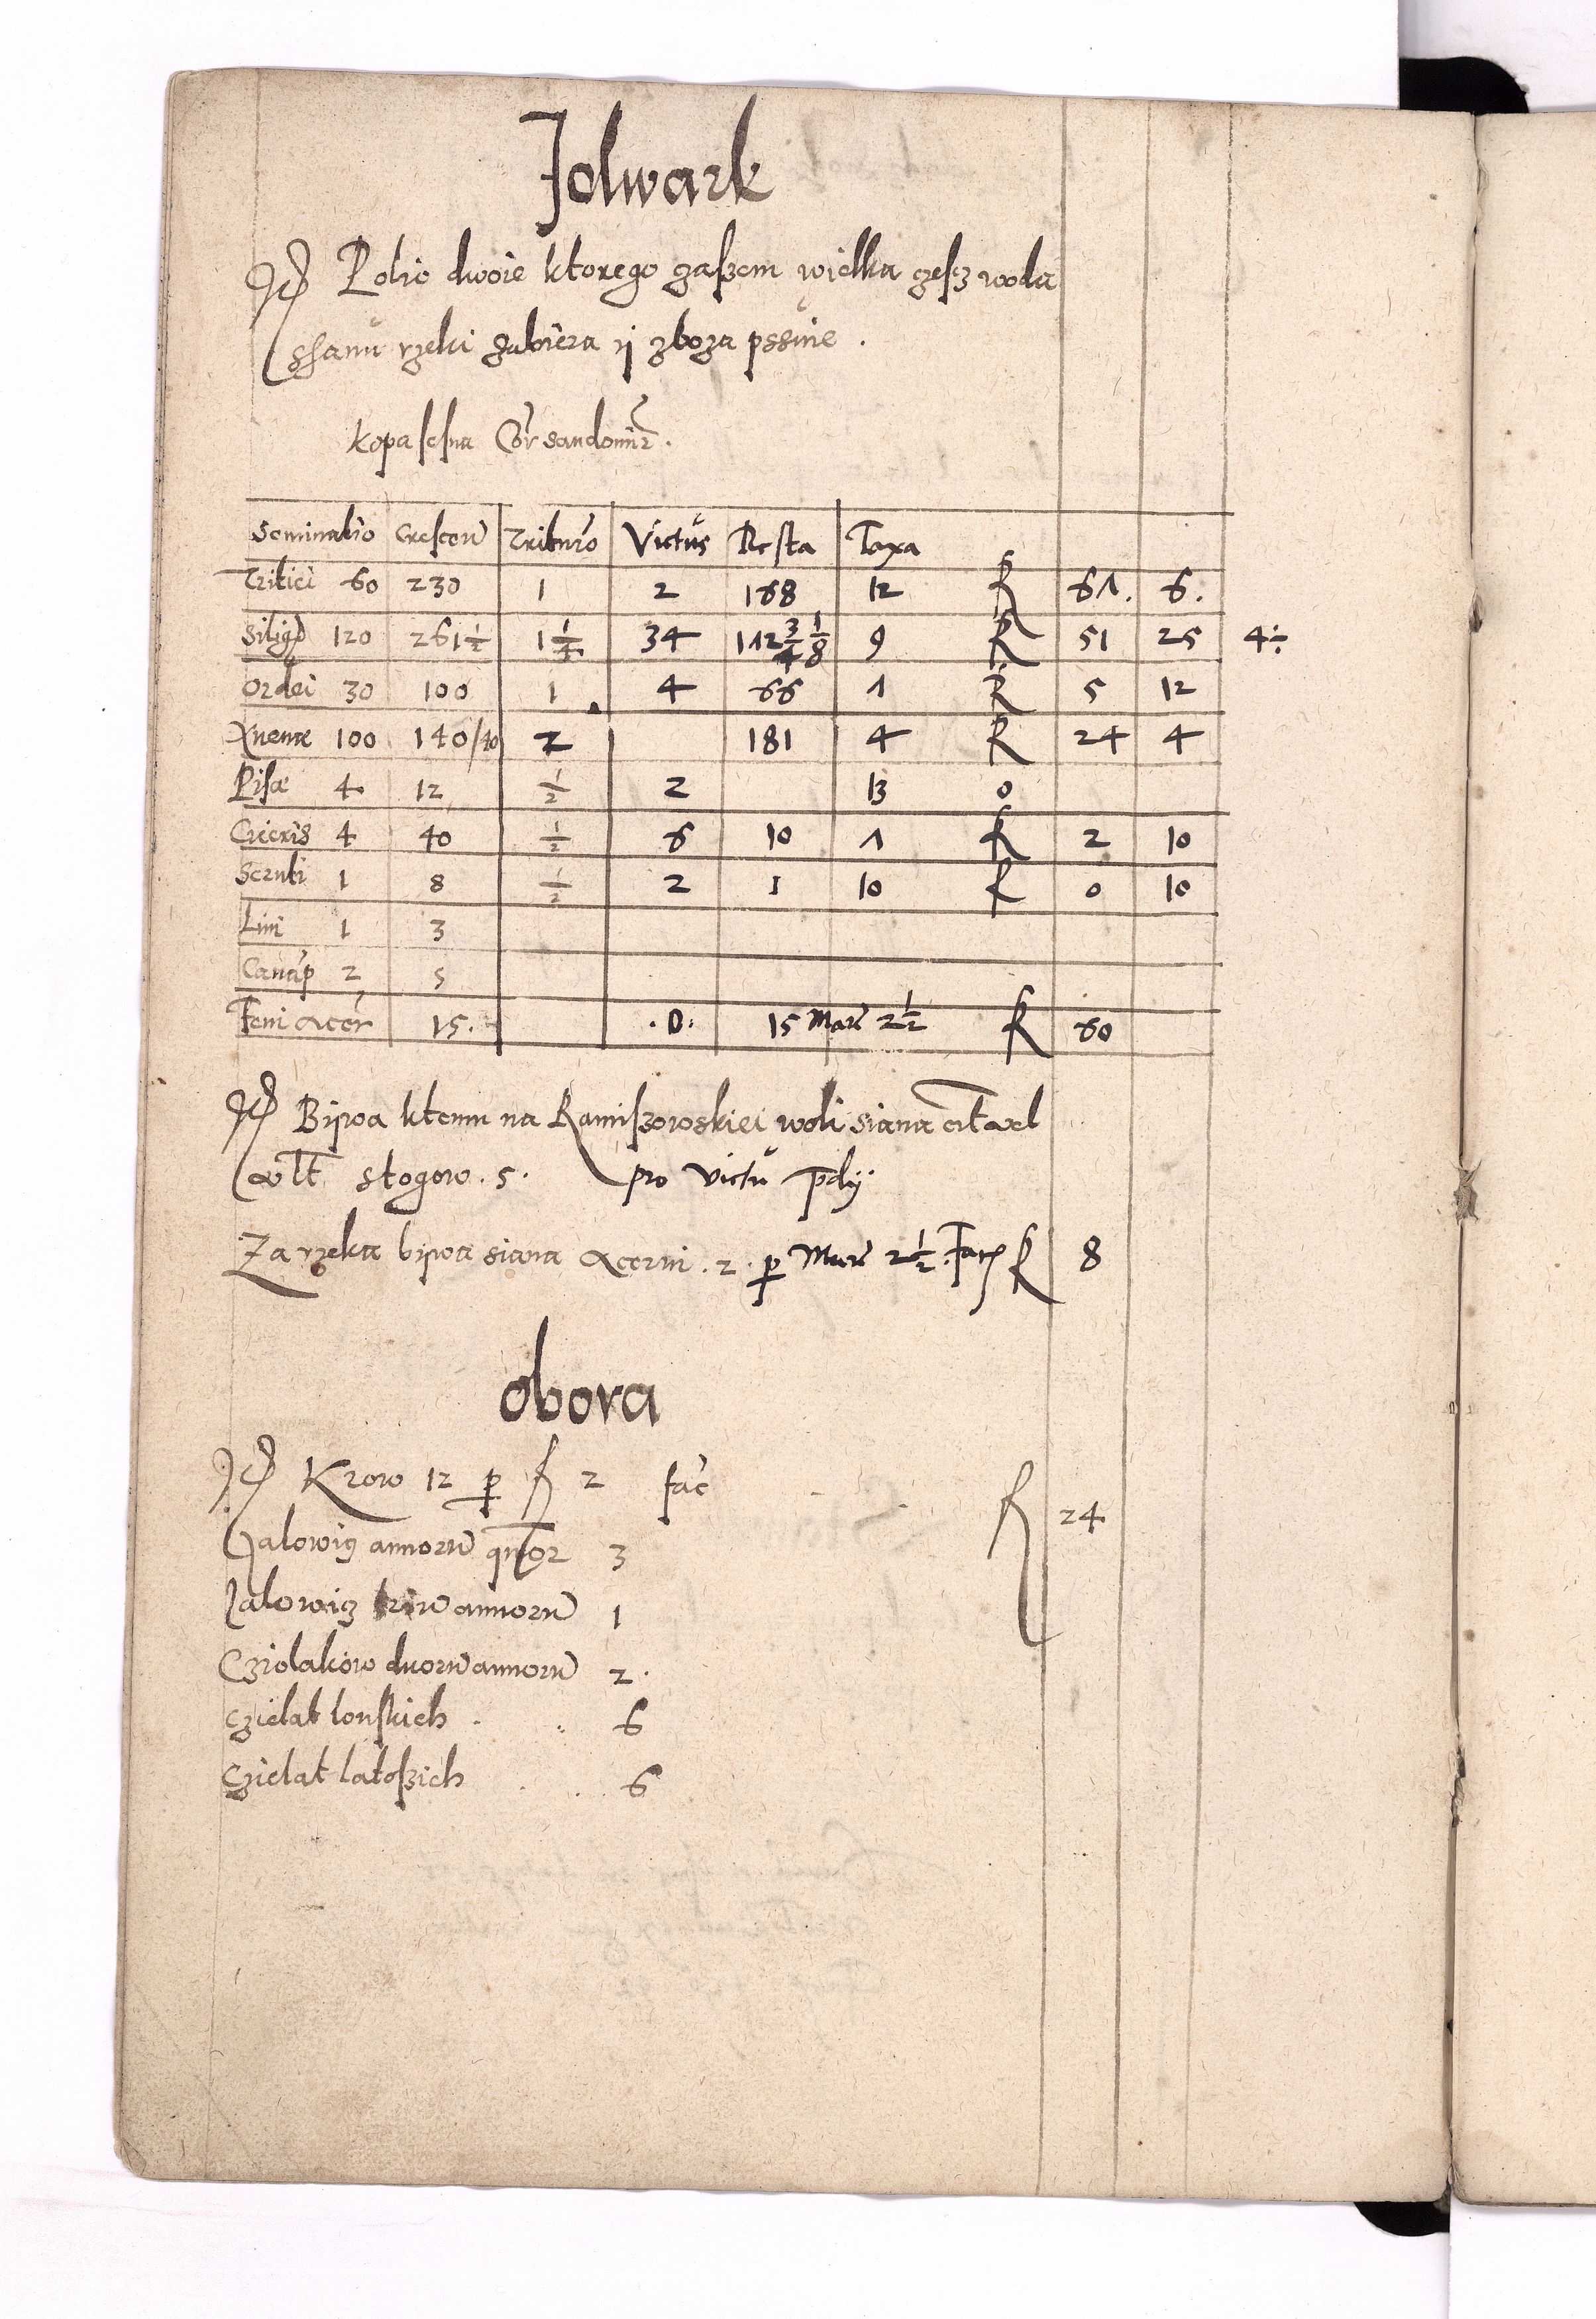 Folwark
It Polio dwoie ktorego zaszem wielka czesz woda
ssanu rzeki zabiera ij zboza pssuie.
kopa sesna Cor sandomir.
Seminatio Crescen Trituro Victus Resta Taxa
Tritici 60 230 1 2 168 12 f 61. 6.
Siligis 120 261½ 1¼ 34 112 ¾ ⅛ 9 f 51 25 4÷
Ordei 30 100 1 4 66 1 f 5 12
Avenae 100 140/40 2 181 4 f 24 4
Pisae 4 12 ½ 2 13 0
Ciceris 4 40 ½ 6 10 1 f 2 10
1 8 ½ 2 1 10 f 0 10
Lini 1 3
Canap 2 5
Feni acer 15. .0. 15 Marc 2½ f 60
It Bywa ktemu na Raniszowskiei woli siana
stogow. 5. pro victu pdij
Za rzeka bywa siana acervi. 2. p Marc 2½. Fac f 8
obora
It Krow 12 p f 2 fac f 24
Jalowiz annoru quor 3
Jalowiz triu annoru 1
Cziolakow duoru annoru 2.
czielat lonskich 6
czielat latoszich 6